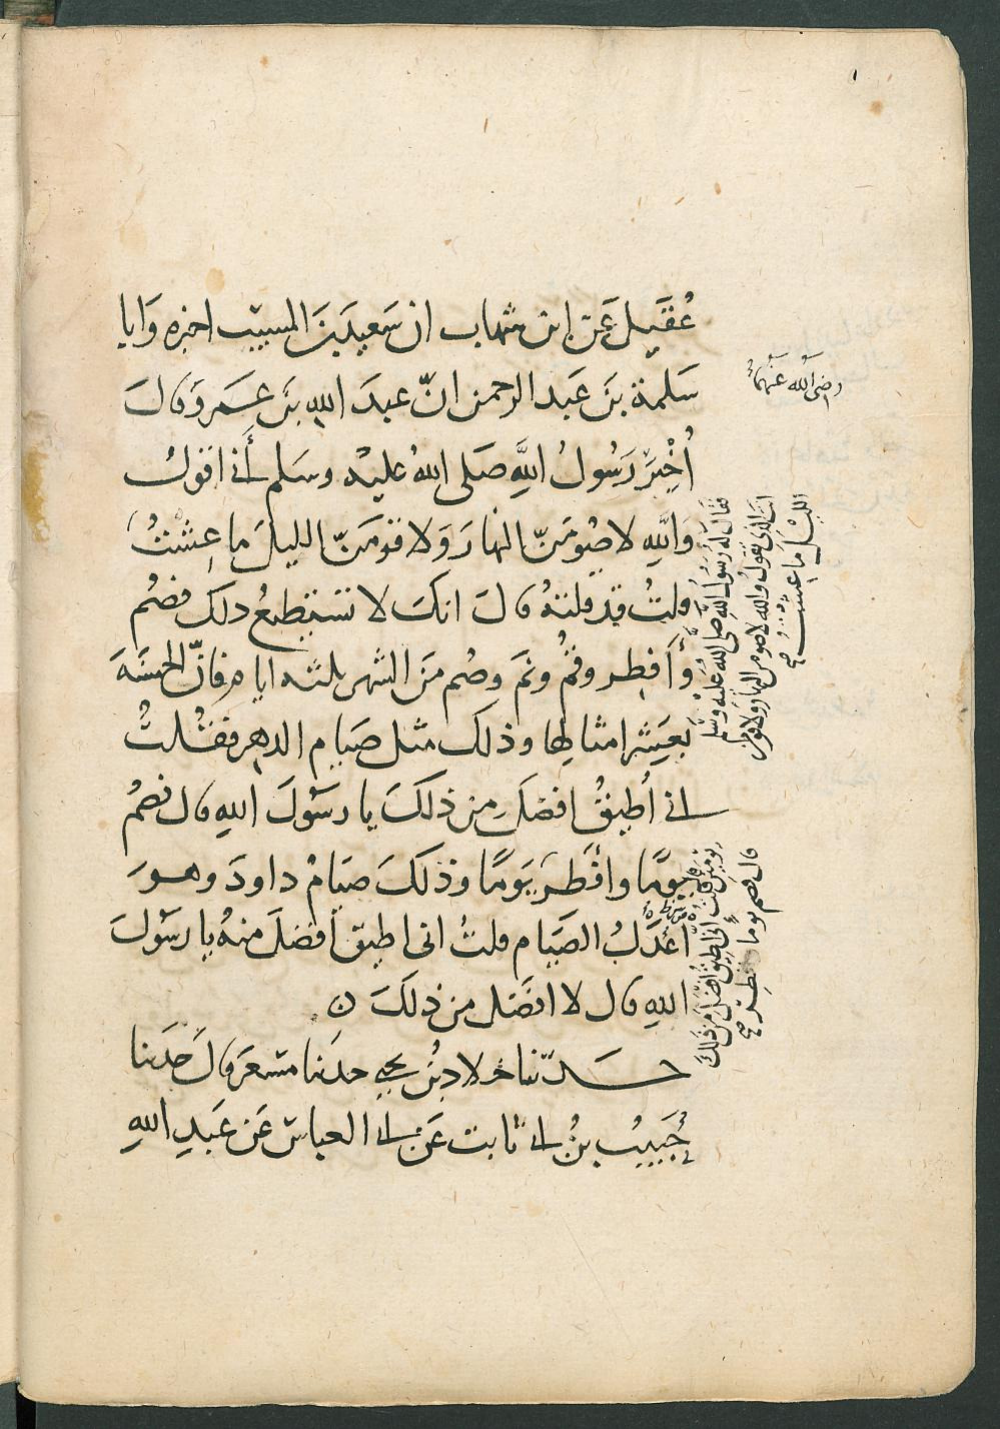 عُقَيل عَن ابن شهاب ان سَعيد بنَ المسيب اخبره وَابا
سَلمة بنَ عَبد الرحمن انّ عبدَ الله بنَ عَمرو قَالَ
أُخْبِرَ رَسُولُ اللَّهِ صَلى اللهُ عليْه وسَلم أَني اقولُ
وَاللَّهِ لاصُومَنّ النهارَ وَلاقومَنّ الليلَ ما عِشْتُ
قلتُ قد قلتهُ قالَ انكَ لا تستطيعُ ذلك فصُم
وأَفطِر وقُم ونَم وصُم منَ الشهر ثلثه ايام فانّ الحسَنَةَ
بعَشر امثالها وذلك مثل صيام الدهر فقُلتُ
اني أُطيقُ افضلَ من ذلكَ يا رسُولَ اللهِ قال فصُمْ
يومًا وافْطر يَومًا وذلكَ صيَامُ داودَ وهو
أَعْدَلُ الصيَام قلتُ انى اطيق أفضلَ منهُ يا رسُولَ
اللهِ قال لا افضَل من ذلكَ ن
حَدّثنا خلاد بنُ يحيى حدثنا مسْعَر قال حَدثنا
حَبيبُ بنُ ابي ثابت عَن ابي العباس عَن عَبدِ اللهِ
رضى الله عَنهُما
فقال له رَسُول الله صَلى اللهُ عليْه وسَلم
انت الذى يقول والله لاصومن النهار ولاقومن
الليْل مَا عِشت صح
يومين قلت انى اطيق افضَل من ذلك
قال فصم يوما وافطر صح